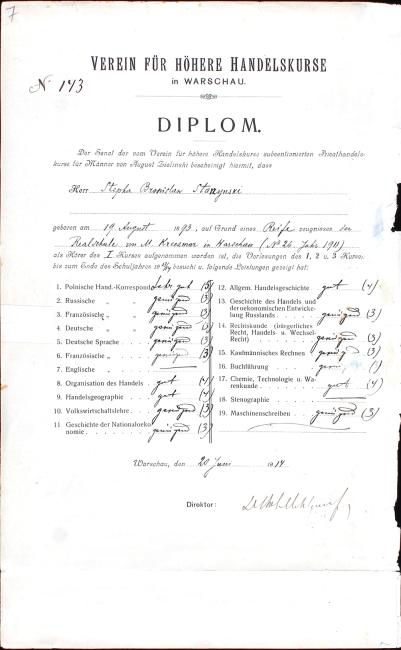 7
VEREIN FÜR HÖHERE HANDELSKURSE
in WARSCHAU.
№ 143
DIPLOM.
Der Senat der vom Verein für höhere Handelskurse subventionierten Privathandels-
kurse für Männer von August Zielinski bescheinigt hiermit, dass
Herr Stepha Bronislaw Starzynski
geboren am 19 August 1893, auf Grund eines Reife zeugnisses der
Realschule von M. Kreczmar in Warschau (№ 26 Jahr 1911)
als Hörer des I Kurses aufgenommen worden ist, die Vorlesungen des 1, 2 u. 3 Kurses
bis zum Ende des Schuljahres 19 besucht u. folgende Leistungen gezeigt hat:
1. Polnische Hand.-Korrespond. Sehr gut (5)
2. Russische „ „ genügend (3)
3. Französische „ „ genügend (3)
4. Deutsche „ „ genügend (3)
5. Deutsche Sprache genügend (3)
6. Französische „ genügend (3)
7. Englische „
8. Organisation des Handels gut (4)
9. Handelsgeographie gut (4)
10. Volkswirtschaftslehre genügend (3)
11. Geschichte der Nationaloeko-
nomie genügend (3)
12. Allgem. Handelsgeschichte gut (4)
13. Geschichte des Handels und
der oekonomischen Entwicke-
lung Russlands genügend (3)
14. Rechtskunde (bürgerliches
Recht, Handels- u. Wechsel-
Recht) genügend (3)
15. Kaufmännisches Rechnen genügend (3)
16. Buchführung
17. Chemie, Technologie u. Wa-
renkunde gut (4)
18. Stenographie
19. Maschinenschreiben genügend (3)
Warschau, den 20 Juni 1914
Direktor: